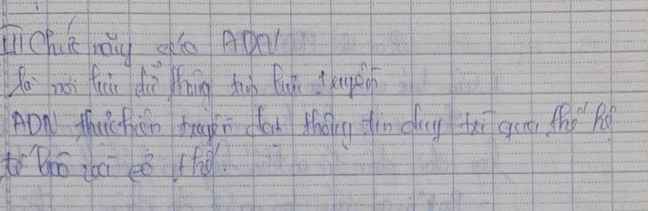 III Chức năng của ADN
Là nơi lưu giữ thông tin di truyền
ADN thực hiện truyền đạt thông tin duy trì qua thế hệ
tế bào và cơ thể.